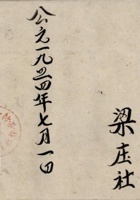 梁庄社
公元一九五四年七月一日